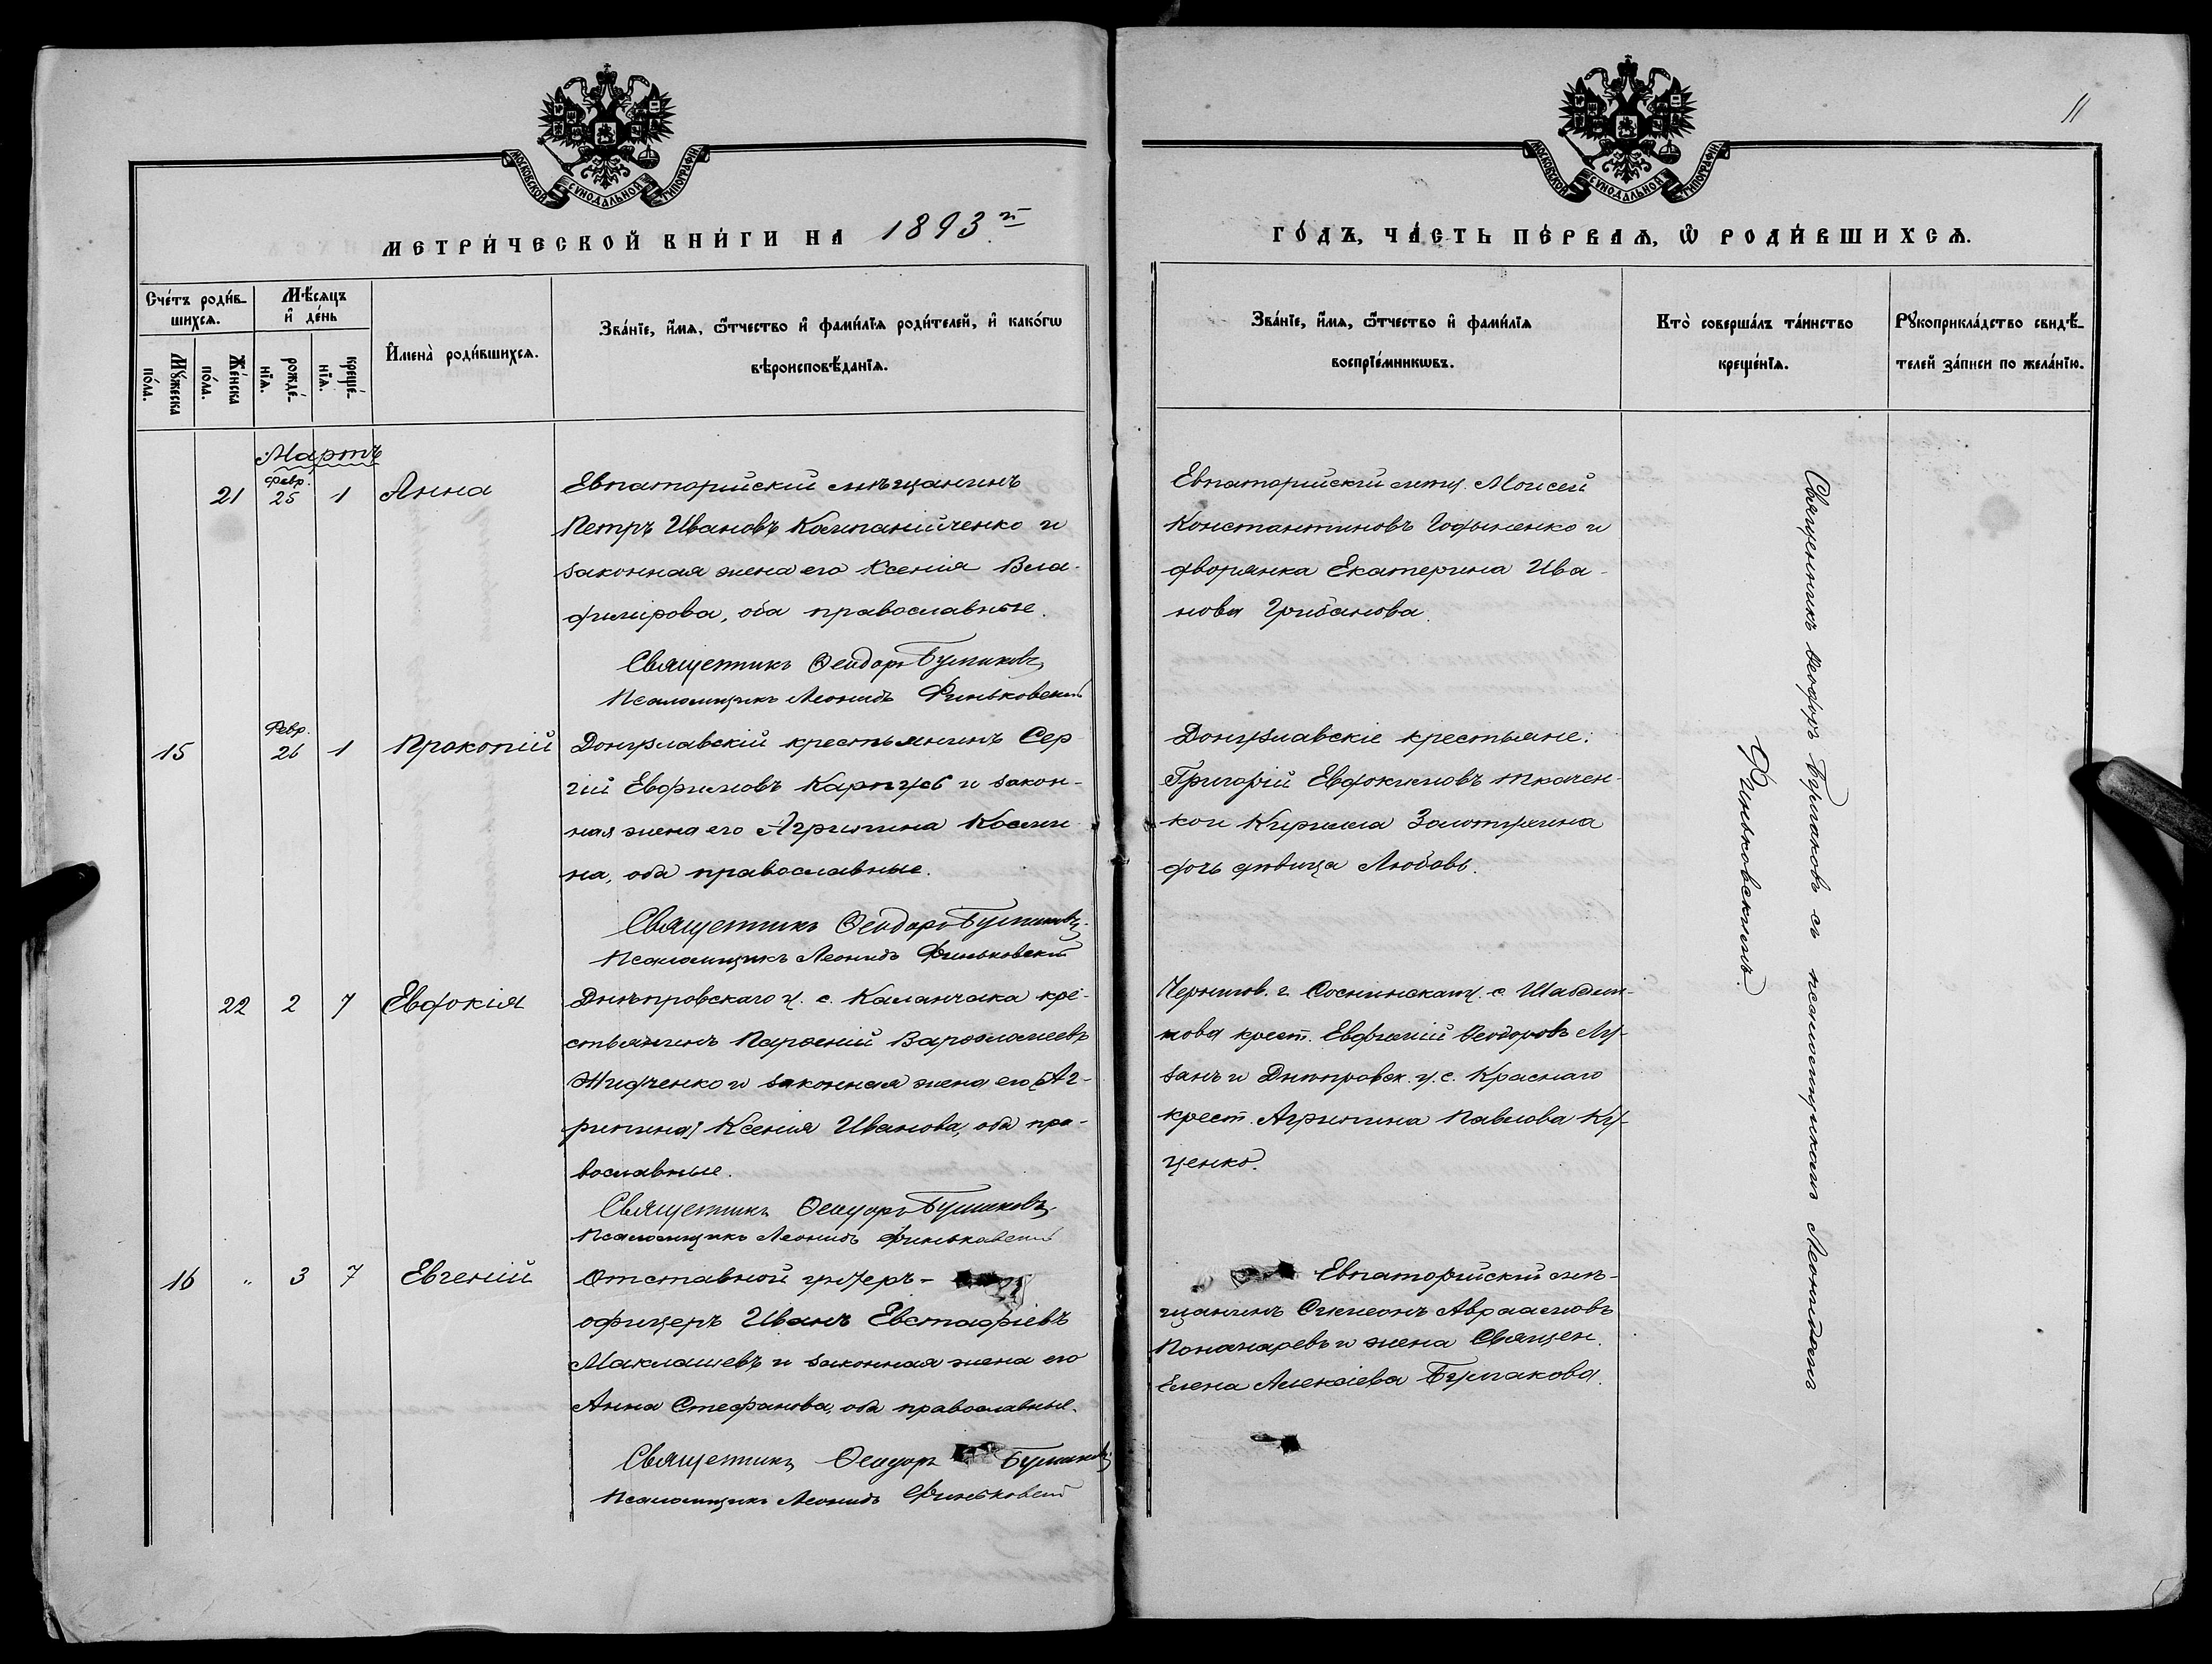 11
МОСКОВСКОЙ СѴНОДАЛЬНОЙ ТИПОГРАФІИ
МОСКОВСКОЙ СѴНОДАЛЬНОЙ ТИПОГРАФІИ
МЕТРИ́ЧЕСКОЙ КНИ́ГИ НА 1893.й
ГО́ДЪ, ЧА́СТЬ ПЕ́РВАѦ, Ѽ РОДИ́ВШИХСѦ.
Сче́тъ роди́в-
шихсѧ.
Мѹ́жеска
по́ла.
Же́нска
по́ла.
Мѣ́сѧцъ
и҆ де́нь
рожде́-
нїѧ.
креще́-
нїѧ.
И҆мена̀ роди́вшихсѧ.
Зва́нїе, и҆́мѧ, ѻ҆́тчество и҆ фами́лїѧ роди́телей, и҆ како́гѡ
вѣроисповѣ́данїѧ.
Зва́нїе, и҆́мѧ, ѻ҆́тчество и҆ фами́лїѧ
воспрїе́мникѡвъ.
Кто̀ соверша́лъ та́инство
креще́нїѧ.
Рѹкоприкла́дство свидѣ́-
телей за́писи по жела́нїю.
Мартъ
21 февр. 25 1 Анна
Евпаторійскій мѣщанинъ
Петръ Ивановъ Кампанійченко и
законная жена его Ксенія Вла-
димірова, оба православные.
Священникъ Ѳеодоръ Бурлаковъ
Псаломщикъ Леонидъ Финьковскій
Евпаторійскій мѣщ. Моисей
Константиновъ и
дворянка Екатерина Ива-
нова Грибанова.
15 Февр. 26 1 Прокопій
Донузлавскій крестьянинъ Сер-
гій Евфимовъ Карпусь и закон-
ная жена его Агрипина Косми-
на, оба православные.
Священникъ Ѳеодоръ Бурлаковъ
Псаломщикъ Леонидъ Финьковскій
Донузлавскіе крестьяне:
Григорій Евдокимовъ Ткачен-
ко и Кирилла
дочь дѣвица Любовь.
22 2 7 Евдокія
Днѣпровскаго у. с. Каланчака кре-
стьянинъ Парѳеній Варѳоломеевъ
Жидченко и законная жена его (Аг-
рипина) Ксенія Иванова, оба пра-
вославные.
Священникъ Ѳеодоръ Бурлаковъ
Псаломщикъ Леонидъ Финьковскій
Чернигов. г. Сосницкаго у. с.
крест. Евфимій Ѳеодоровъ Лу-
занъ и Днѣпровск. у. с. Краснаго
крест. Агрипина Павлова Ку-
ценко.
16 " 3 7 Евгеній
Отставной унтеръ-
офицеръ Иванъ Евстафіевъ
Маклашевъ и законная жена его
Анна Стефанова, оба православные.
Священникъ Ѳеодоръ Бурлаковъ
Псаломщикъ Леонидъ Финьковскій
Евпаторійскій мѣ-
щанинъ Симеонъ Авраамовъ
Понамаревъ и жена Священ.
Елена Алексіева Бурлакова.
Священникъ Ѳеодоръ Бурлаковъ съ псаломщикомъ Леонидомъ
Финьковскимъ.